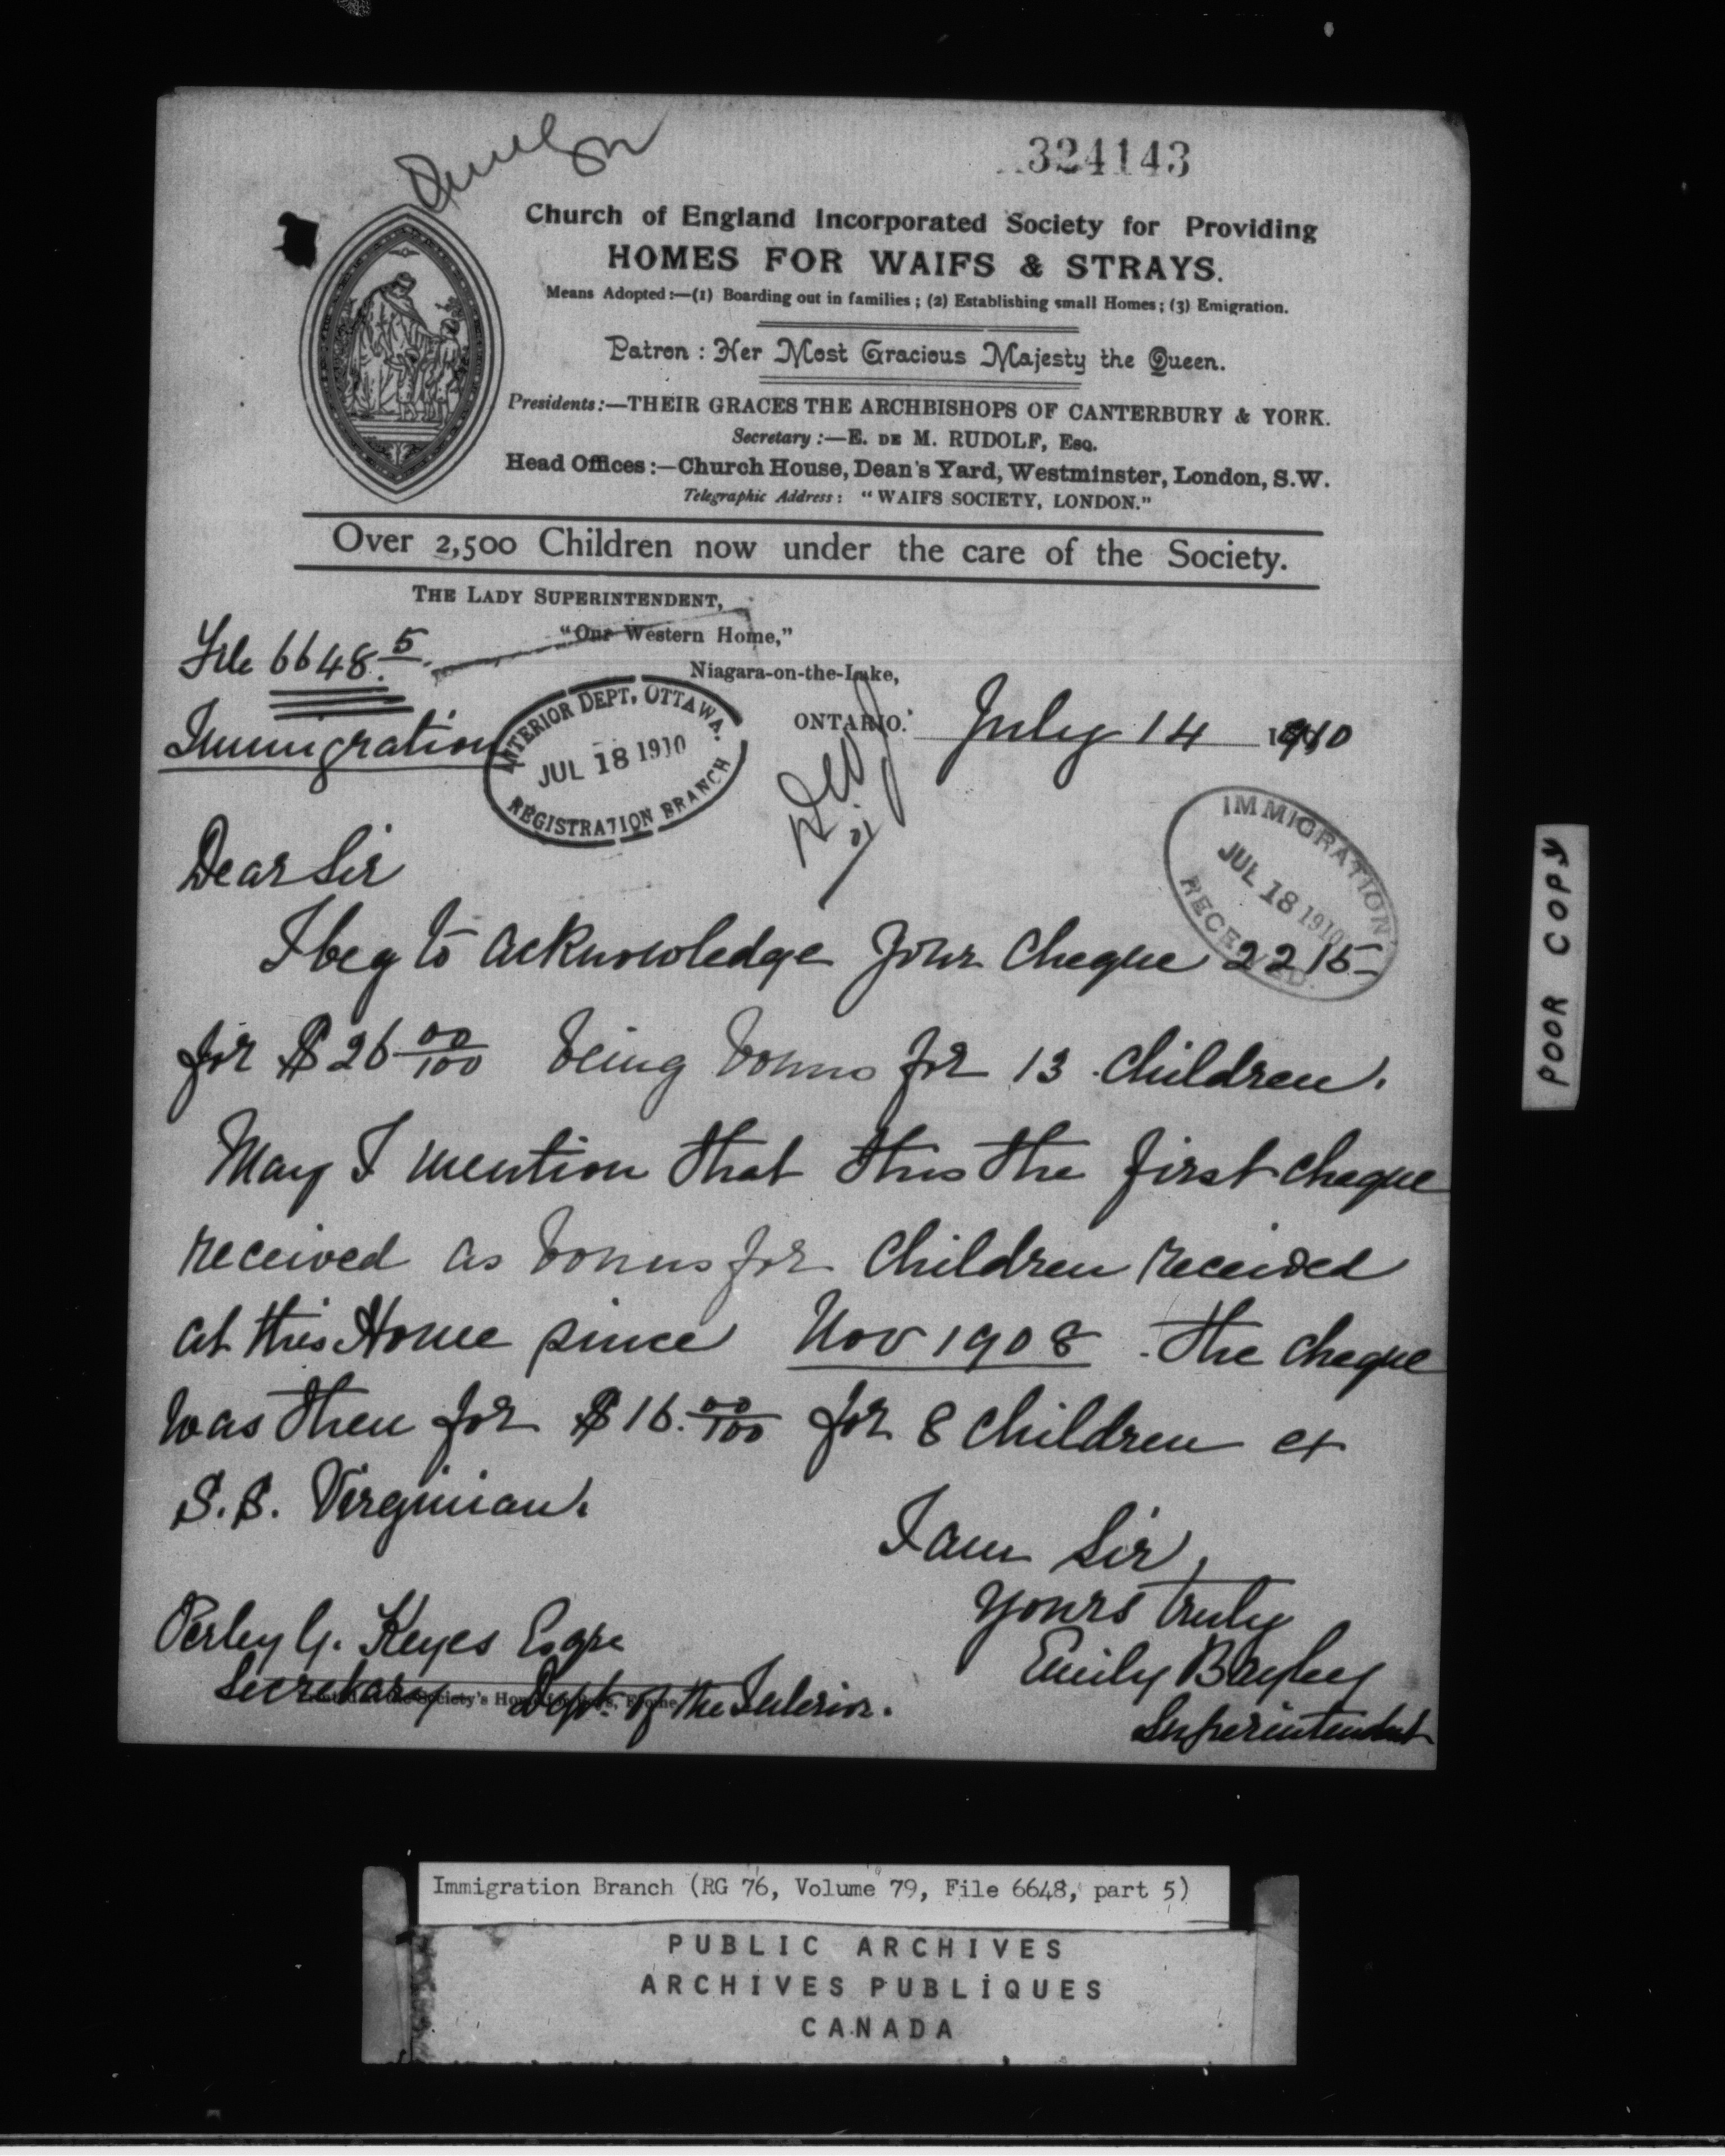 324143
Church of England Incorporated Society for Providing
HOMES FOR WAIFS & STRAYS.
Means Adopted:—(1) Boarding out in families; (2) Establishing small Homes; (3) Emigration.
Patron: Her Most Gracious Majesty the Queen.
Presidents:—THEIR GRACES THE ARCHBISHOPS OF CANTERBURY & YORK.
Secretary:—E. DE M. RUDOLF, Esq.
Head Offices:—Church House, Dean's Yard, Westminster, London, S.W.
Telegraphic Address: "WAIFS SOCIETY, LONDON."
Over 2,500 Children now under the care of the Society.
THE LADY SUPERINTENDENT,
"Our Western Home,"
Niagara-on-the-Lake,
ONTARIO. July 14 1910
File 6648.5
Immigration
INTERIOR DEPT, OTTAWA.
JUL 18 1910
REGISTRATION BRANCH
IMMIGRATION
JUL 18 1910
RECEIVED.
Dear Sir
I beg to acknowledge your cheque 2215
for $26 00/100 being bonus for 13 children.
May I mention that this the first cheque
received as bonus for children received
at this Home since Nov 1908. The cheque
was then for $16.00/100 for 8 children ex
S.S. Virginian.
I am Sir,
yours truly
Emily Bayley
Superintendent
Perley G. Keyes Esqre
Secretary Dept. of the Interior.
POOR COPY
Immigration Branch (RG 76, Volume 79, File 6648, part 5)
PUBLIC ARCHIVES
ARCHIVES PUBLIQUES
CANADA